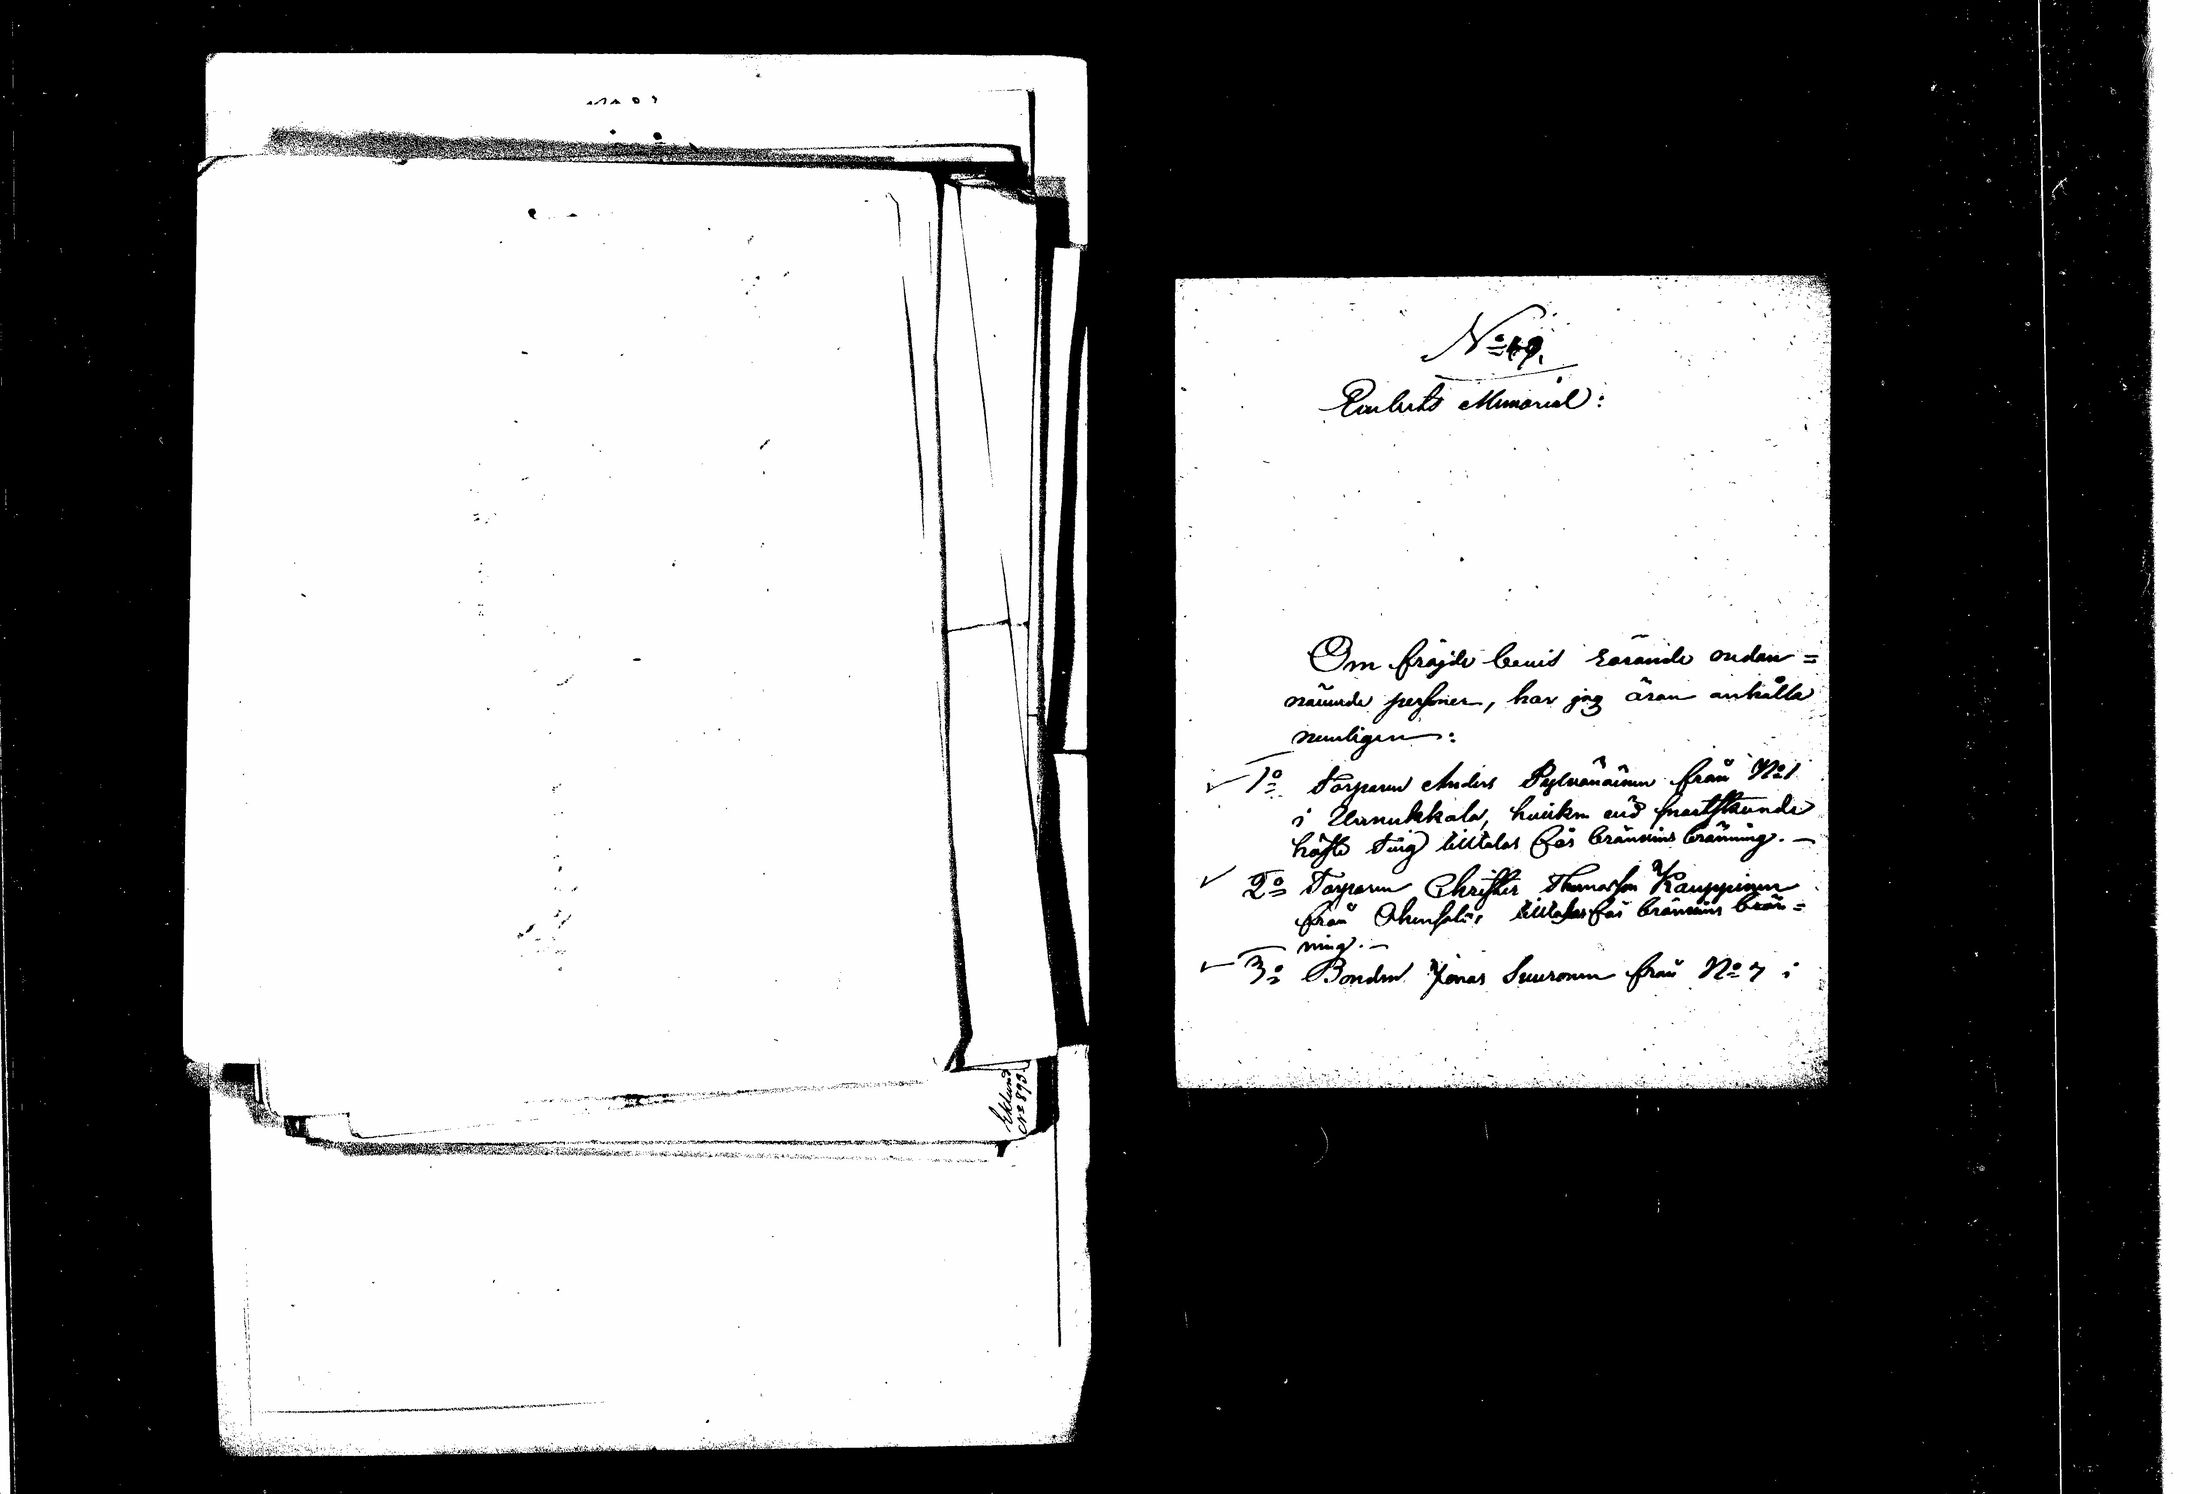 No 49.
Memorial:
Om fräjde bevis rörande nedan=
nämnde personer, har jag äran anhålla
nemligen:
1o Torparen Anders Pylvänäinen från No 1
i Vanukkala, hvilken vid
höste Ting tilltalas för bränvins bränning.
2o Torparen Christer Thomasson Kauppinen
från tilltalas för bränvins brän=
ning.
3o Bonden Jonas Suuronen från No 7 i
Eklund
No 893